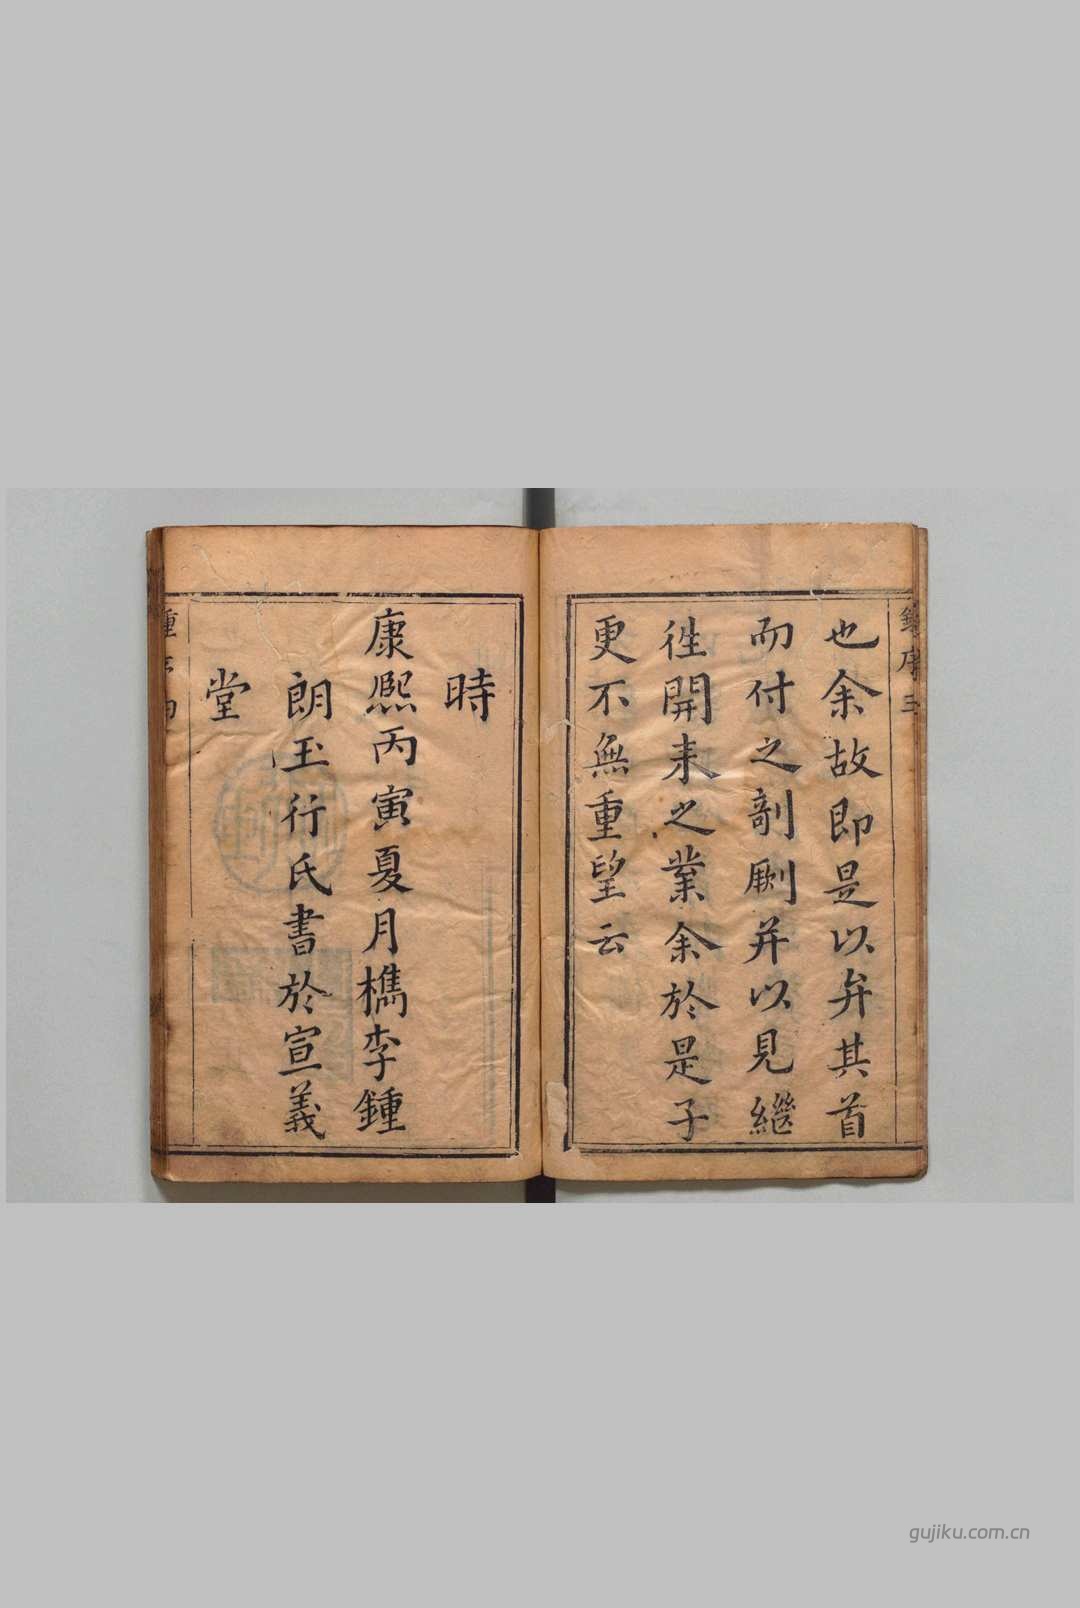 也余故即是以弁其首
而付之剞劂并以見繼
徃開来之業余於是子
更不無重望云
時
康熙丙寅夏月檇李鍾
朗玉行氏書於宣義
堂
gujiku.com.cn